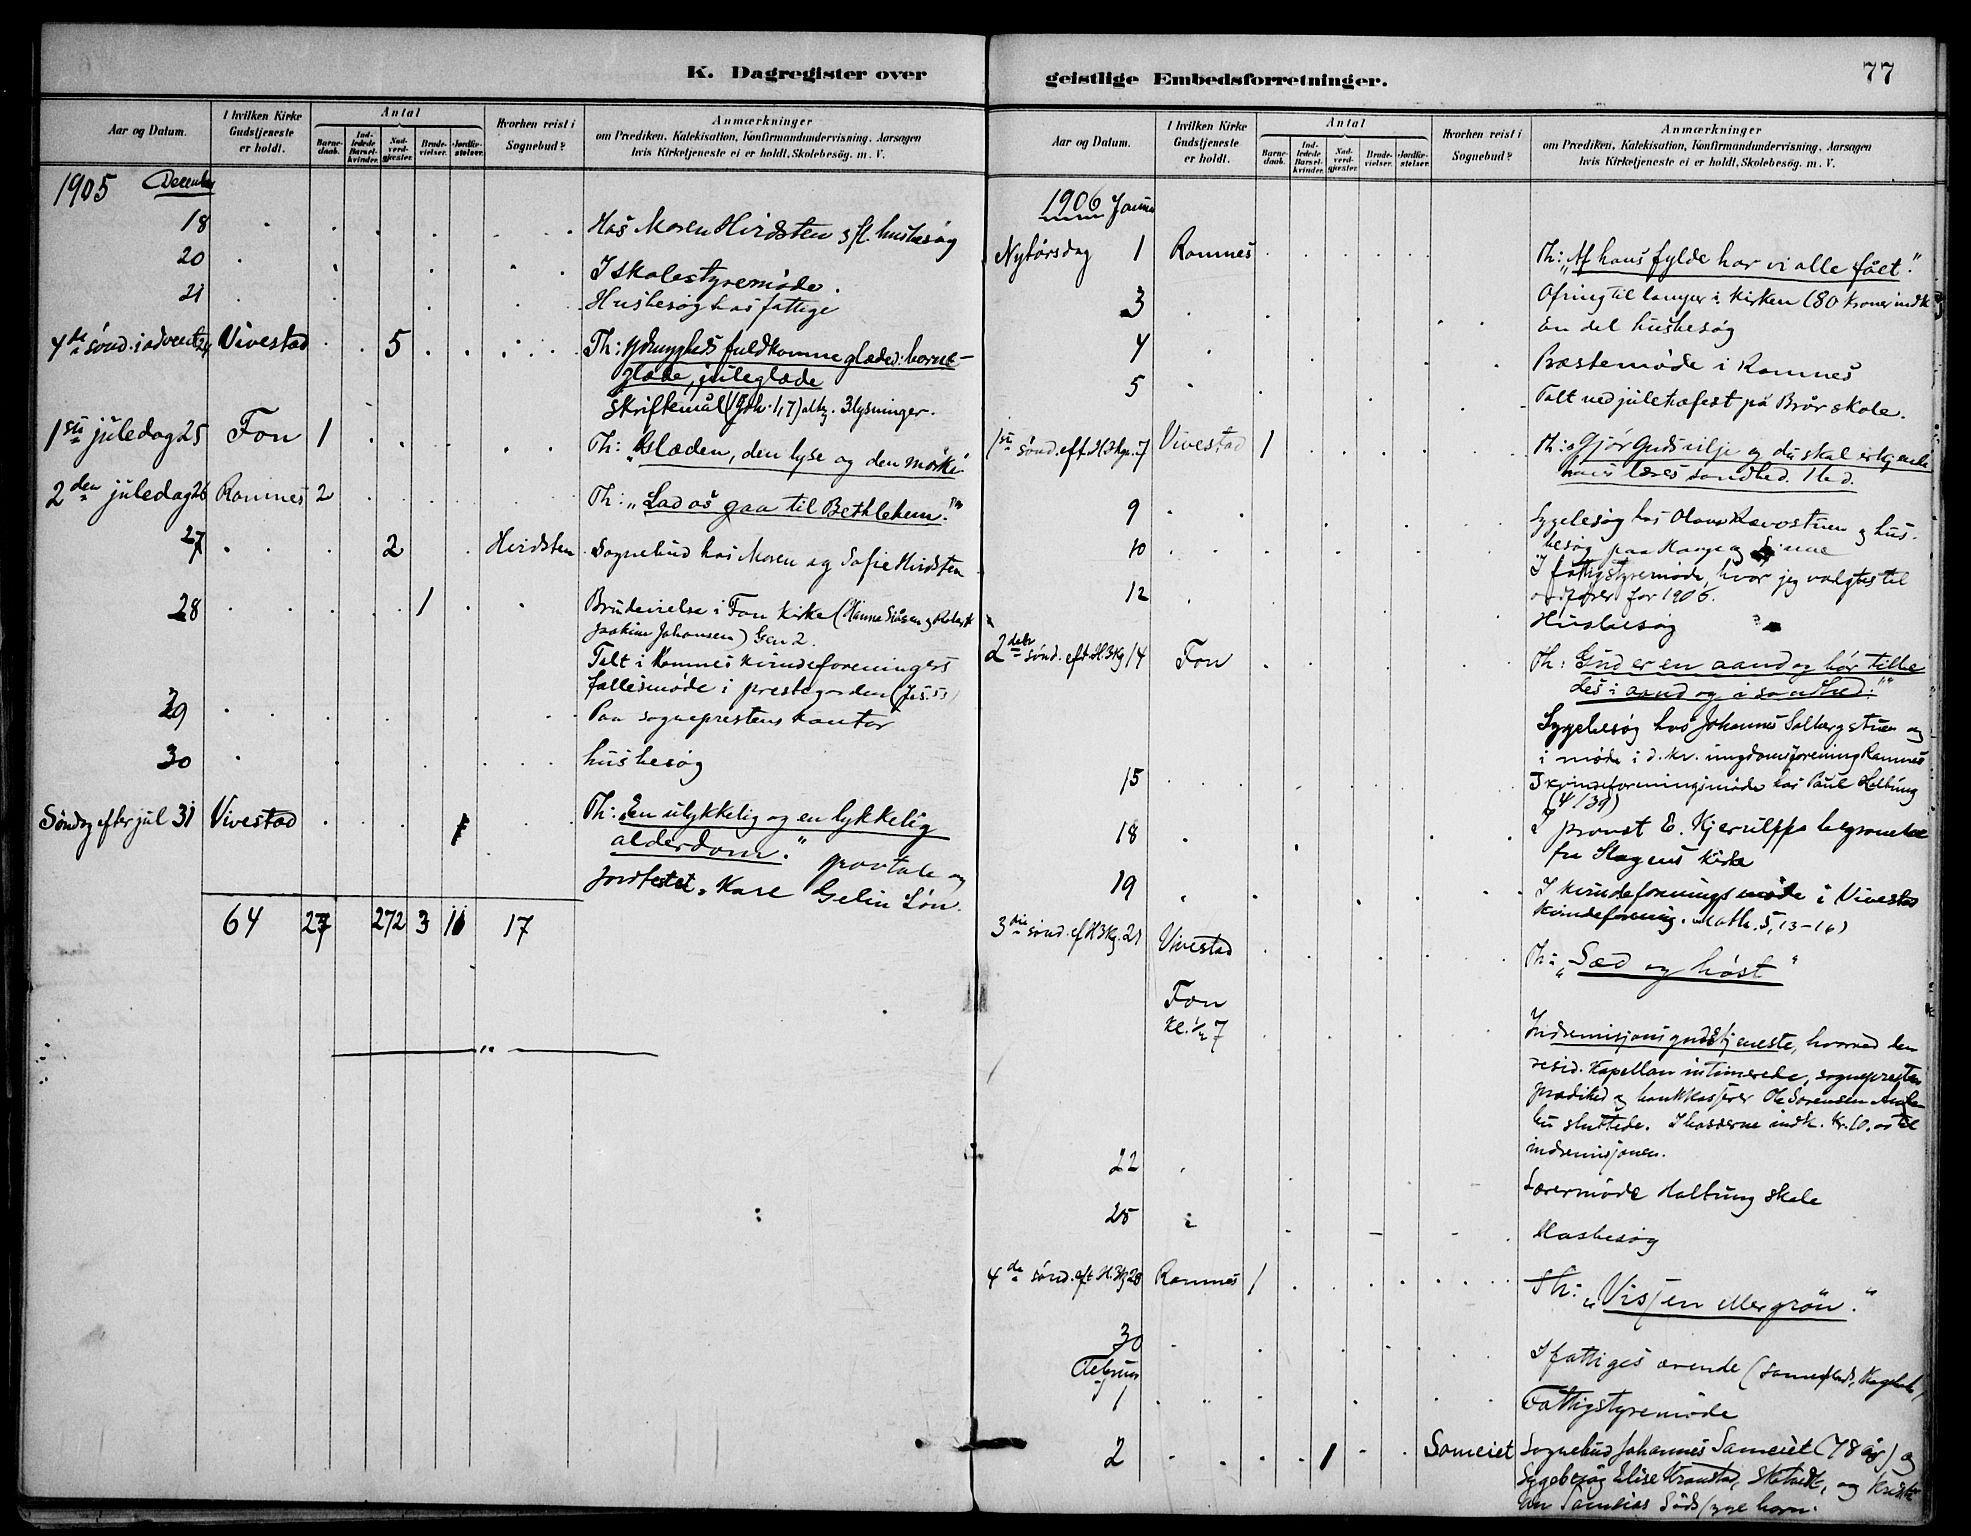 K. Dagregister over
Aar og Datum.
I hvilken Kirke Gudstjeneste er holdt.
Antal
Barnedaab.
Indledede Barselkvinder.
Nadverdgjester.
Brudevielser.
Jordfæstelser.
Hvorhen reist i Sognebud?
Anmærkninger
om Prædiken, Katekisation, Konfirmandundervisning, Aarsagen
hvis Kirketjeneste ei er holdt, Skolebesög. m. V.
1905 December
18 Hos Moren Hirdsten o fl. husbesøg
20 I skolestyremøde.
21 Husbesøg hos fattige
4de sønd. i advent 24 Vivestad 5 Th: fuldkomne glæde: barne-
glæde, juleglæde
Skriftemål (Joh. 1,7) 3 lysninger.
1ste juledag 25 Fon 1 Th: "Glæden, den lyse og den mørke
2den juledag 26 Ramnes 2 Th: "Lad os gaa til Bethlehem."
27 2 Hirdsten Sognebud hos Moren og Sofie Hirdsten
28 1 Brudevielse i Fon Kirke (Hanna
Joakim Johansen) Gen 2.
Talt i Ramnes kvindeforeningers
fællesmøde i prestegaarden (Jes. 53)
29 Paa sogneprestens kontor
30 husbesøg
Søndag efter jul 31 Vivestad 1 Th: "En ulykkelig og en lykkelig
alderdom." gravtale og
Jordfestet, Karl Gelin Løn.
64 27 272 3 11 17
geistlige Embedsforretninger.
77
Aar og Datum.
I hvilken Kirke Gudstjeneste er holdt.
Antal
Barnedaab.
Indledede Barselkvinder.
Nadverdgjester.
Brudevielser.
Jordfæstelser.
Hvorhen reist i Sognebud?
Anmærkninger
om Prædiken, Katekisation, Konfirmandundervisning, Aarsagen
hvis Kirketjeneste ei er holdt, Skolebesög. m. V.
1906 Januar
Nytårsdag 1 Ramnes Th: "Af hans fylde har vi alle fået."
Ofring til lamper i kirken (80 kroner indk
3 En del husbesøg
4 Præstemøde i Ramnes
5 Talt ved juletræfest på Brår skole.
1ste sønd. eft. H3kgr. 7 Vivestad 1 Th: "Gjør Guds vilje og du skal erkjende
læres sandhed.
9 Sygebesøg hos Olava Ravostuen og hus-
besøg paa Hauge og
10 I fattigstyremøde, hvor jeg valgtes til
ordfører for 1906.
12 Husbesøg
2den sønd. eft. H.3Kg 14 Fon Th: Gud er en aand og bør tilbe
des i aand og i sandhed."
Sygebesøg hos Johannes Solbergstuen og
i møde i d. kr. ungdomsforening Ramnes
15 I kvindeforeningsmøde hos Paul Holtung
(4/39)
18 I provst E. Kjerulffs begravelse
fra Slagens Kirke
19 I kvindeforenings møde i Vivestad
kvindeforening. Math. 5, 13-16)
3die sønd. ef H3Kg. 21 Vivestad Th: "Sæd og høst"
Fon
kl. 1/2 7 Indremisjonsgudstjeneste, hvorved den
resid. Kapellan intimerede, sognepresten
prædiked og bankkasserer Ole Sorensen
sluttede. I bøsserne indk. Kr. 10.00 til
indremisjonen.
22 Lærermøde Holtung skole
25 Husbesøg
4de sønd. eft. H.3Kg 28 Ramnes 1 Th: "Vissen eller grön."
30 I fattiges ærende
Februar
1 Fattigstyremøde
2 1 Sameiet Sognebud Johannes Sameiet (78 år) og
Sygebesøg Elise og Kristi-
an Sameies barn.